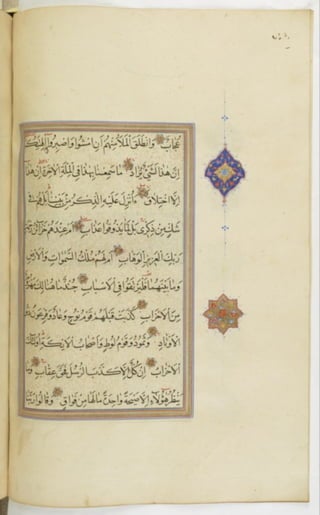 عُجَابٌ وَانْطَلَقَ الْمَلَأُ مِنْهُمْ اَنِ امْشُوا وَاصْبِرُوا عَلٰى اٰلِهَتِكُمْ
اِنَّ هٰذَا لَشَيْءٌ يُرَادُ مَا سَمِعْنَا بِهٰذَا فِي الْمِلَّةِ الْاٰخِرَةِ اِنْ هٰذَا
اِلَّا اخْتِلَاقٌ ءَاُنْزِلَ عَلَيْهِ الذِّكْرُ مِنْ بَيْنِنَا بَلْ هُمْ فِي
شَكٍّ مِنْ ذِكْرِي بَلْ لَمَّا يَذُوقُوا عَذَابِ اَمْ عِنْدَهُمْ خَزَائِنُ رَحْمَةِ
رَبِّكَ الْعَزِيزِ الْوَهَّابِ اَمْ لَهُمْ مُلْكُ السَّمٰوَاتِ وَالْاَرْضِ
وَمَا بَيْنَهُمَا فَلْيَرْتَقُوا فِي الْاَسْبَابِ جُنْدٌ مَا هُنَالِكَ مَهْزُومٌ
مِنَ الْاَحْزَابِ كَذَّبَتْ قَبْلَهُمْ قَوْمُ نُوحٍ وَعَادٌ وَفِرْعَوْنُ ذُو
الْاَوْتَادِ وَثَمُودُ وَقَوْمُ لُوطٍ وَاَصْحَابُ الْاَيْكَةِ اُولٰئِكَ
الْاَحْزَابُ اِنْ كُلٌّ اِلَّا كَذَّبَ الرُّسُلَ فَحَقَّ عِقَابِ وَمَا
يَنْظُرُ هٰؤُلَاءِ اِلَّا صَيْحَةً وَاحِدَةً مَا لَهَا مِنْ فَوَاقٍ وَقَالُوا رَبَّنَا